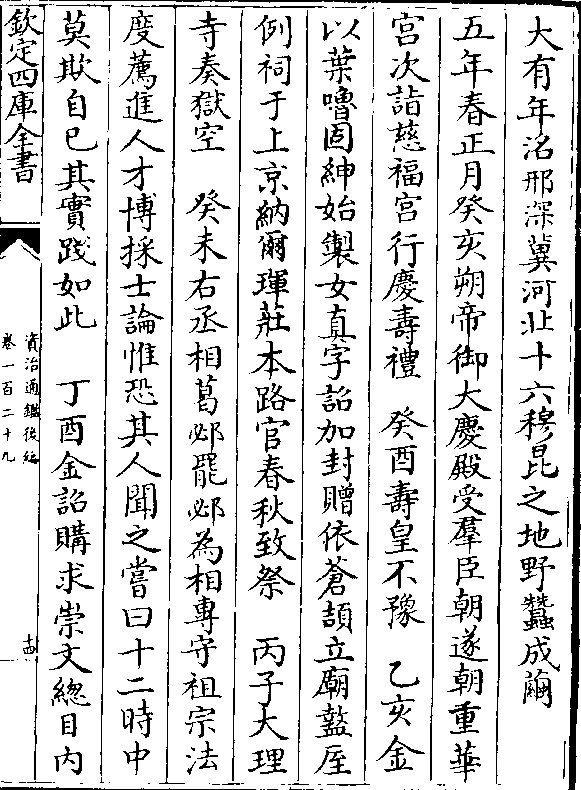 大有年洺邢深冀河北十六穆昆之地野蠶成繭
五年春正月癸亥朔帝御大慶殿受羣臣朝遂朝重華
宮次詣慈福宮行慶壽禮　癸酉壽皇不豫　乙亥金
以葉嚕固紳始製女真字詔加封贈依蒼頡立廟盩厔
例祠于上京納爾琿莊本路官春秋致祭　丙子大理
寺奏獄空　癸未右丞相葛邲罷邲為相專守祖宗法
度薦進人才博採士論惟恐其人聞之嘗曰十二時中
莫欺自已其實踐如此　丁酉金詔購求崇文總目内
欽定四庫全書
資治通鑑後編
卷一百二十九
十四